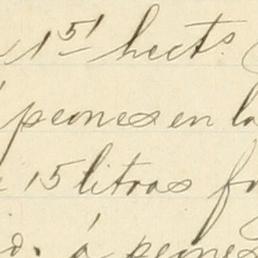 1 51 hects
peones en la
15 litros
id. á peones